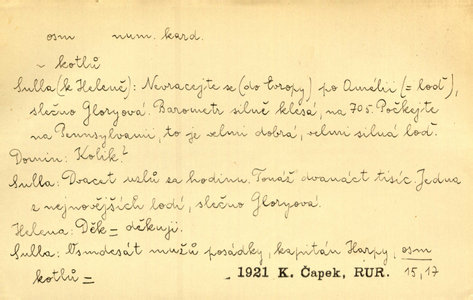 osm num. kard.
~ kotlů
Sulla (k Heleně): Nevracejte se (do Evropy) po Amélii (= loď),
slečno Gloryová. Barometr silně klesá, na 705. Počkejte
na Pennsylvami, to je velmi dobrá, velmi silná loď.
Domin: Kolik?
Sulla: Dvacet uzlů za hodinu. Tonáž dvanáct tisíc. Jedna
z nejnovějších lodí, slečno Gloryová.
Helena: Děk= děkuji.
Sulla: Osmdesát mužů posádky, kapitán Harpy, osm
kotlů = 1921 K. Čapek, RUR. 15,17